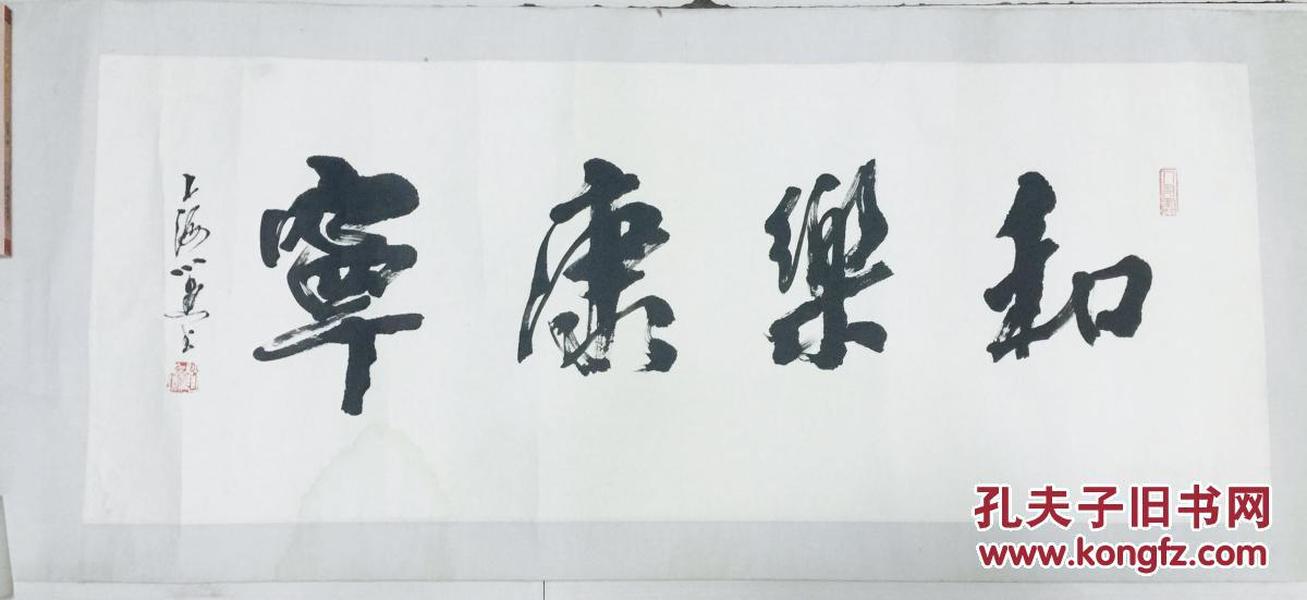 和樂康寧
上海
孔夫子旧书网
www.kongfz.com